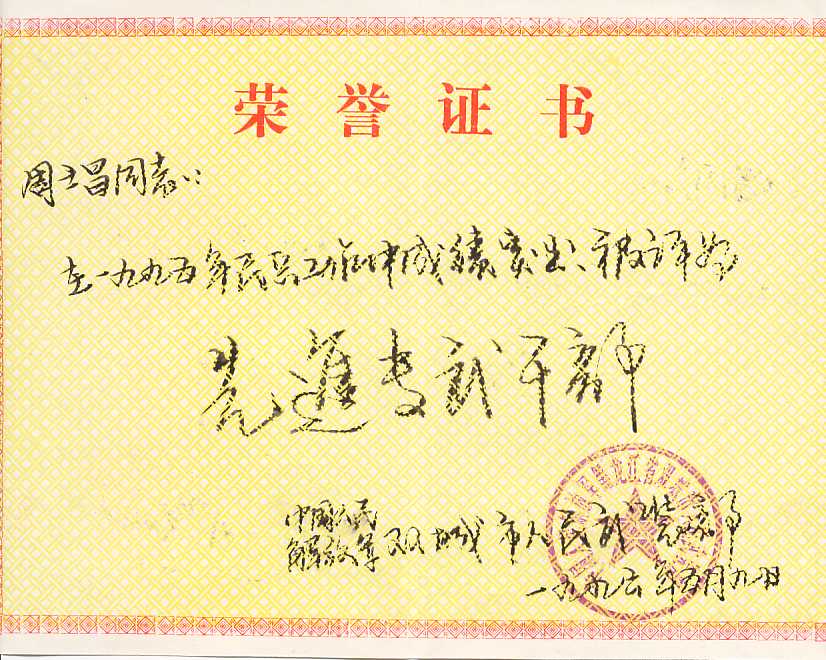 荣誉证书
周立昌同志：
在一九九五年民兵工作中成绩突出、被评为
先進专武干部
中国人民
解放军双城市人民武装部
一九九六年五月九日